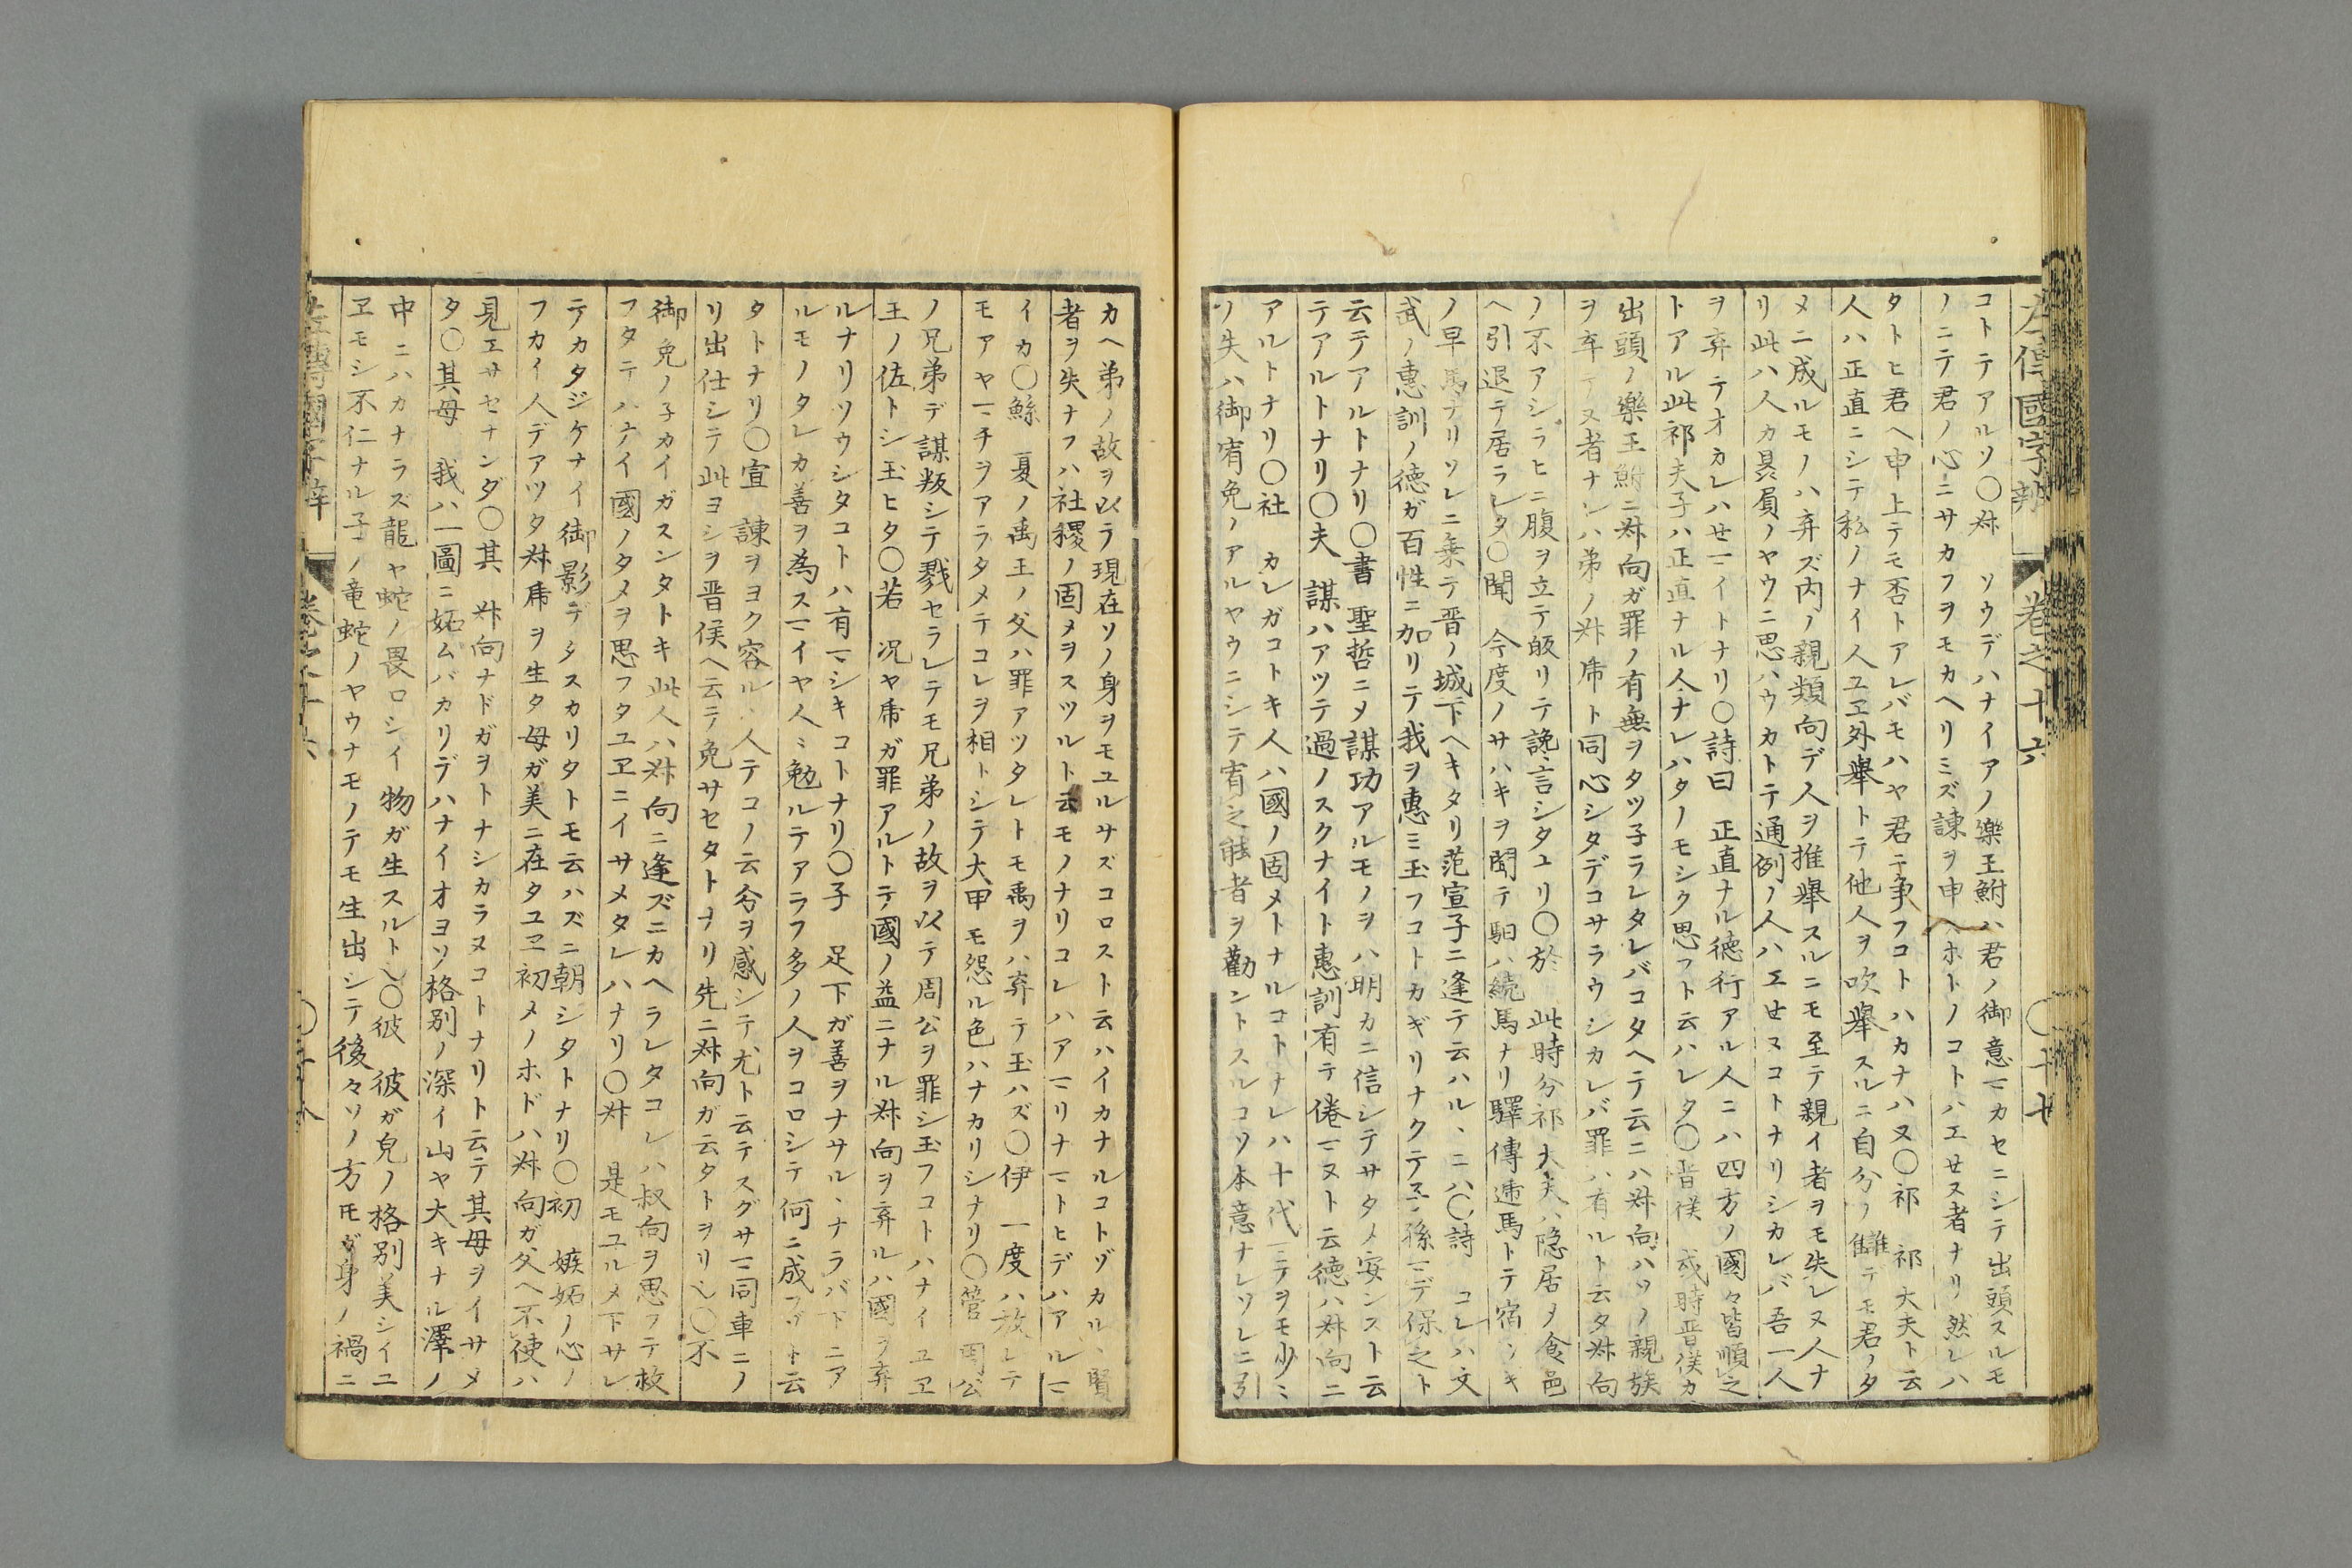 左傳國字辨 卷之十六 〇十七
コトテアルソ〇叔 ソウデハナイアノ樂王鮒ハ君ノ御意ニマカセニシテ出頭スルモ
ノニテ君ノ心ニサカフヲモカヘリミズ諫ヲ申ヘホトノコトハエセヌ者ナリ然レハ
タトヒ君ヘ申上テモ否トアレバモハヤ君ニ争フコトハカナハヌ〇祁 祁大夫ト云
人ハ正直ニシテ私ノナイ人ユヱ外舉トテ他人ヲ吹舉スルニ自分ノ讎デモ君ノタ
メニ成ルモノハ弃ズ内ノ親類向デ人ヲ推舉スルニモ至テ親イ者ヲモ失レヌ人ナ
リ此ハ人カ贔屓ノヤウニ思ハウカトテ通例ノ人ハエセヌコトナリシカレバ吾一人
ヲ弃テオカレハセマイトナリ〇詩曰 正直ナル徳行アル人ニハ四方ノ國々皆順之
トアル此祁夫子ハ正直ナル人ナレハタノモシク思フト云ハレタ〇晋侯 或時晋侯カ
出頭ノ樂王鮒ニ叔向ガ罪ノ有無ヲタツ子ラレタレバコタヘテ云ニハ叔向ハソノ親族
ヲ弃テヌ者ナレハ弟ノ叔乕ト同心シタデコサラウシカレバ罪ハ有ルト云タ叔向
ノ不アシラヒニ腹ヲ立テ皈リテ讒言シタユリ〇於 此時分祁大夫ハ隠居ノ食邑
ヘ引退テ居ラレタ〇聞 今度ノサハキヲ聞テ馹ハ続馬ナリ驛傳逓馬トテ宿ツキ
ノ早馬ナリソレニ乗テ晋ノ城下ヘキタリ范宣子ニ逢テ云ハルヽニハ〇詩 コレハ文
武ノ惠訓ノ徳ガ百性ニ加リテ我ヲ惠ミ玉フコトカギリナクテ子孫マデ保之ト
云テアルトナリ〇書 聖哲ニメ謀功アルモノヲハ明カニ信シテサタメ安ンスト云
テアルトナリ〇夫 謀ハアツテ過ノスクナイト惠訓有テ倦マヌト云徳ハ叔向ニ
アルトナリ〇社 カレガコトキ人ハ國ノ固メトナルコトナレハ十代マテヲモ少ミ
ソ失ハ御宥免ノアルヤウニシテ宥之能者ヲ勸ントスルコソ本意ナレソレニ引
カヘ弟ノ故ヲ以ラ現在ソノ身ヲモユルサズコロスト云ハイカナルコトゾカルヽ賢
者ヲ失ナフハ社稷ノ固メヲスツルト云モノナリコレハアマリナマトヒデハアルマ
イカ〇鯀 夏ノ禹王ノ父ハ罪アツタレトモ禹ヲハ弃テ玉ハズ〇伊 一度ハ放レテ
モアヤマチヲアラタメテコレヲ相トシテ大甲モ怨ル色ハナカリシナリ〇管 周公
ノ兄弟デ謀叛シテ戮セラレテモ兄弟ノ故ヲ以テ周公ヲ罪シ玉フコトハナイユヱ
王ノ佐トシ玉ヒタ〇若 况ヤ乕ガ罪アルトテ國ノ益ニナル叔向ヲ弃ルハ國ヲ弃
ルナリソウシタコトハ有マシキコトナリ〇子 足下ガ善ヲナサルヽナラバ下ニア
ルモノタレカ善ヲ為スマイヤ人ミ勉ルテアラフ多ノ人ヲコロシテ何ニ成フゾト云
タトナリ〇宣 諫ヲヨク容ルヽ人テコノ云分ヲ感シテ尤ト云テスグサマ同車ニノ
リ出仕シテ此ヨシヲ晋侯ヘ云テ免サセタトナリ先ニ叔向ガ云タトヲリ也〇不
御免ノ子カイガスンタトキ此人ハ叔向ニ逢ズニカヘラレタコレハ叔向ヲ思フテ救
フタテハナイ國ノタメヲ思フタユヱニイサメタレハナリ〇叔 是モユルメ下サレ
テカタジケナイ御影デタスカリタトモ云ハズニ朝シタトナリ〇初 嫉妬ノ心ノ
フカイ人デアツタ叔乕ヲ生タ母ガ美ニ在タユヱ初メノホドハ叔向ガ父ヘ不使ハ
見エサセナンダ〇其 叔向ナドガヲトナシカラヌコトナリト云テ其母ヲイサメ
タ〇其母 我ハ一圖ニ妬ムバカリデハナイオヨソ格別ノ深イ山ヤ大キナル澤ノ
中ニハカナラズ龍ヤ蛇ノ畏ロシイ物ガ生スルト也〇彼 彼ガ皃ノ格別美シイユ
ヱモシ不仁ナル子ノ竜蛇ノヤウナモノテモ生出シテ後々ソノ方モガ身ノ禍ニ